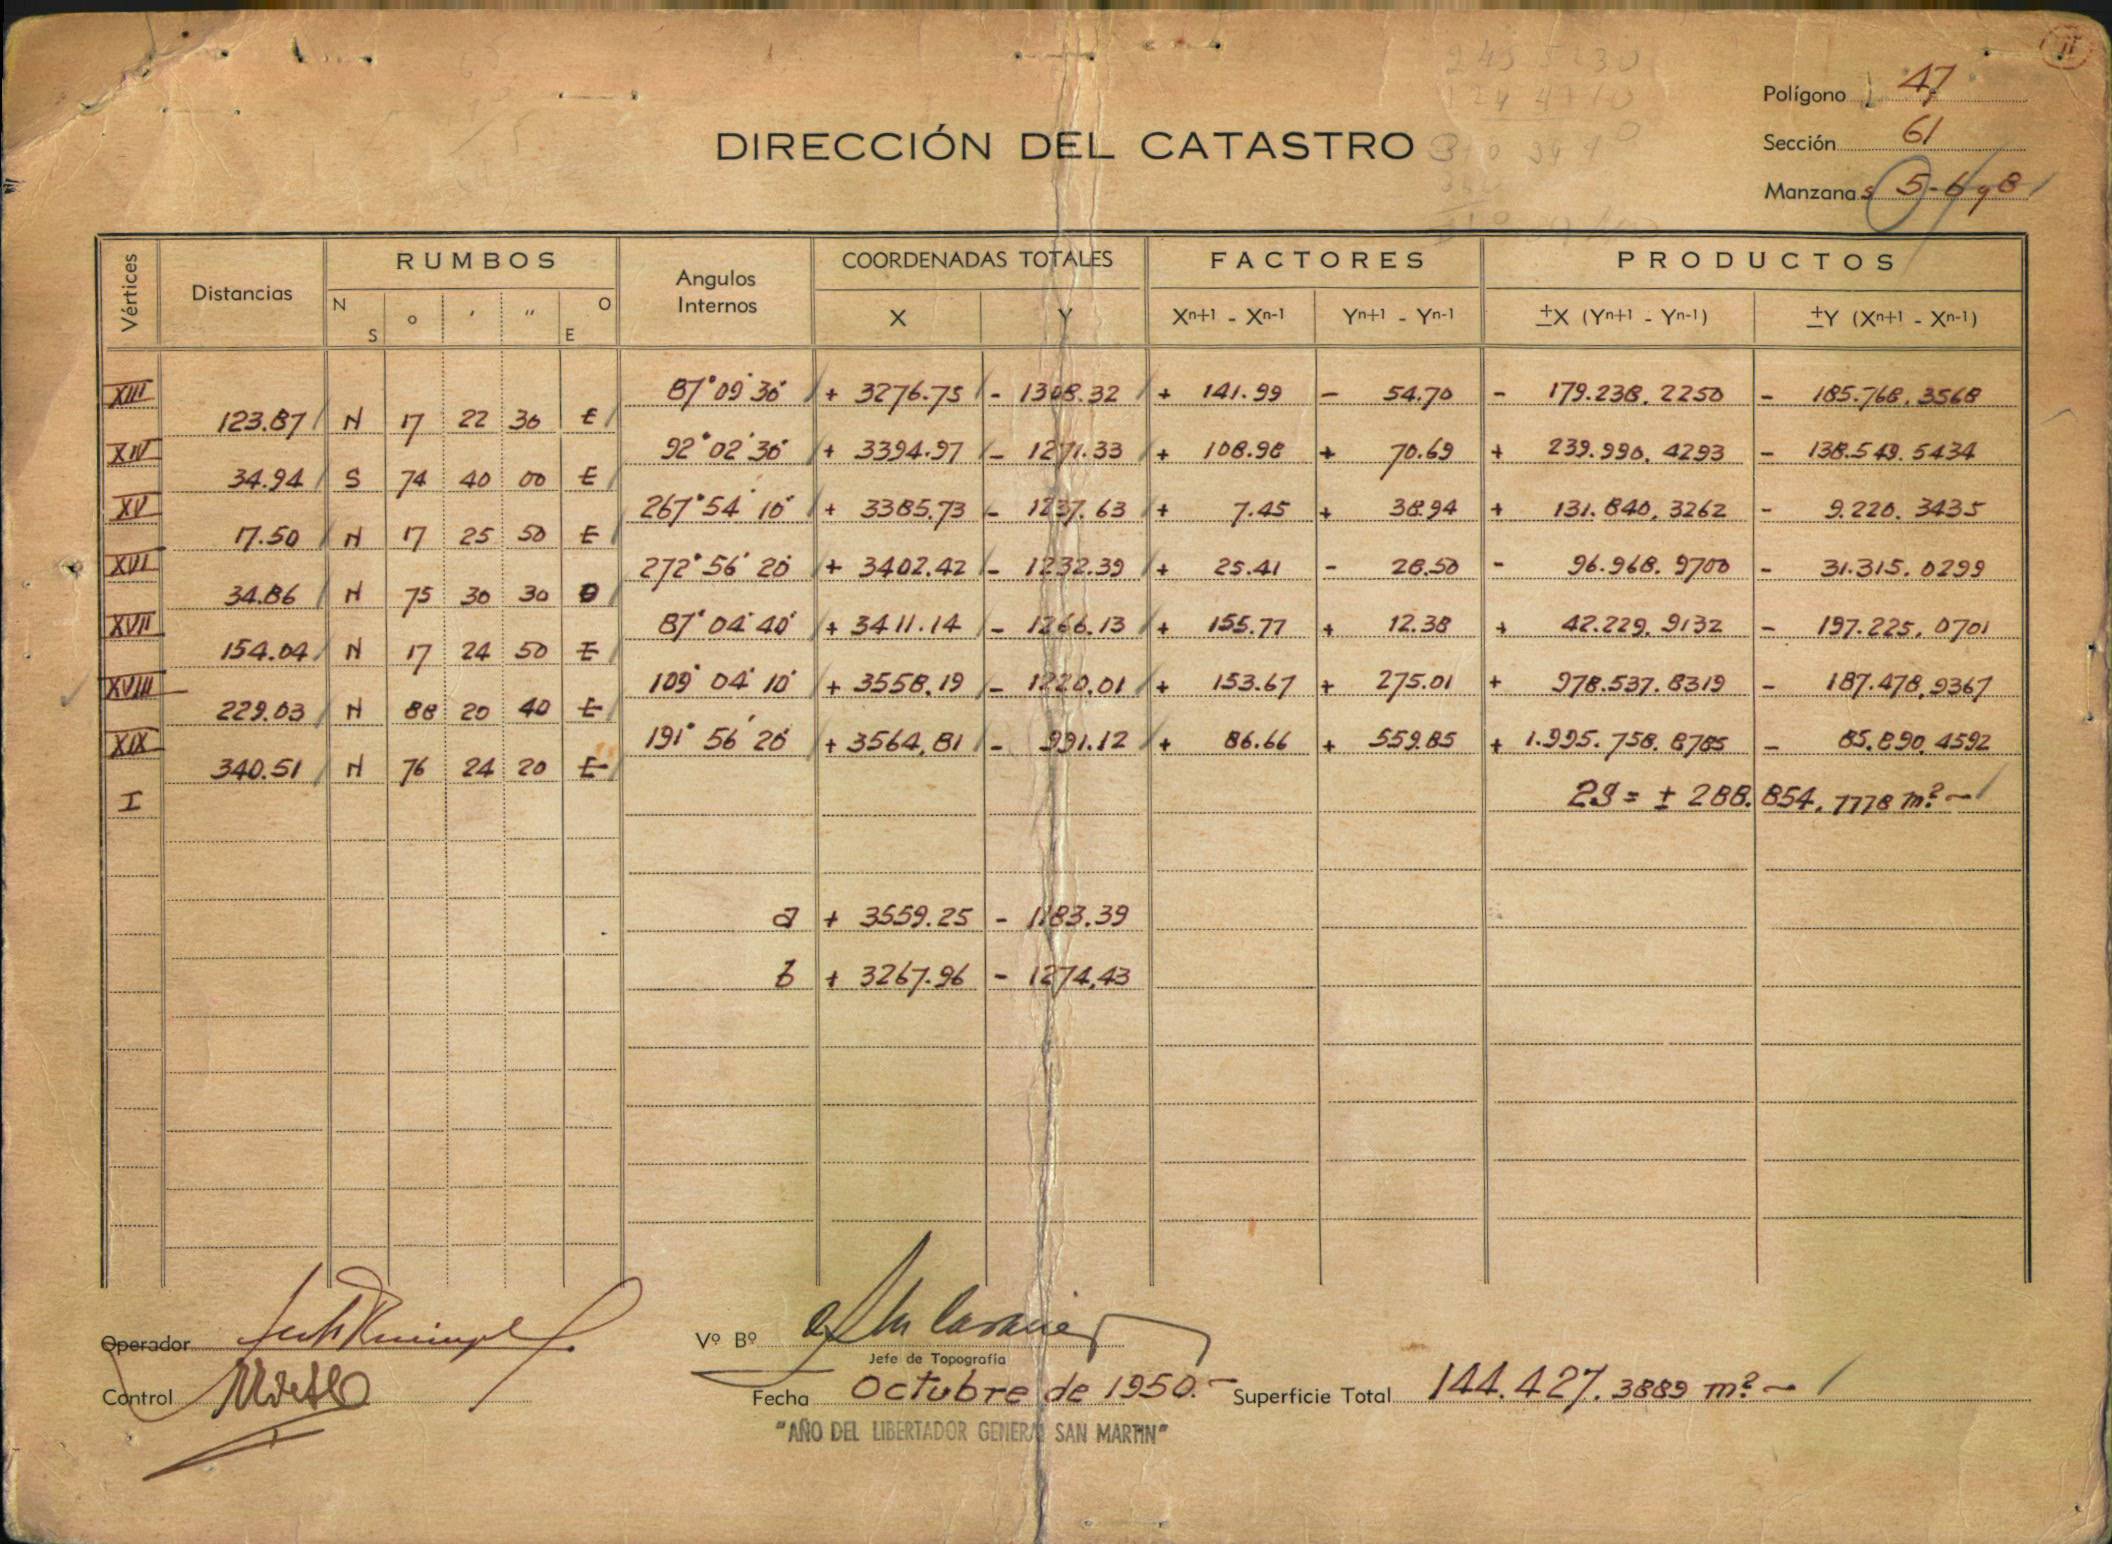 Polígono 47
DIRECCIÓN DEL CATASTRO
Sección 61
Manzanas 5-6 y 8
Vértices Distancias RUMBOS Angulos Internos COORDENADAS TOTALES FACTORES PRODUCTOS
N S o ' '' O E X Y Xn+1 - Xn-1 Yn+1 - Yn-1 ±X (Yn+1 - Yn-1) ±Y (Xn+1 - Xn-1)
XIII 87° 09' 30" + 3276.75 - 1308.32 + 141.99 - 54.70 - 179.238.2250 - 185.768.3568
123.87 N 17 22 30 E
XIV 92° 02' 30" + 3394.97 - 1271.33 + 108.98 + 70.69 + 239.990.4293 - 138.549.5434
34.94 S 74 40 00 E
XV 267° 54' 10" + 3385.73 - 1237.63 + 7.45 + 38.94 + 131.840.3262 - 9.220.3435
17.50 N 17 25 50 E
XVI 272° 56' 20" + 3402.42 - 1232.39 + 25.41 - 28.50 - 96.968.9700 - 31.315.0299
34.86 N 75 30 30 O
XVII 87° 04' 40" + 3411.14 - 1266.13 + 155.77 + 12.38 + 42.229.9132 - 197.225.0701
154.04 N 17 24 50 E
XVIII 109° 04' 10" + 3558.19 - 1220.01 + 153.67 + 275.01 + 978.537.8319 - 187.478.9367
229.03 N 88 20 40 E
XIX 191° 56' 20" + 3564.81 - 991.12 + 86.66 + 559.85 + 1.995.758.8785 - 85.890.4592
340.51 N 76 24 20 E
I 2S = ± 288.854.7778 m².-
a + 3559.25 - 1183.39
b + 3267.96 - 1274.43
Operador
Vº Bº
Jefe de Topografía
Control
Fecha Octubre de 1950.-
Superficie Total 144.427.3889 m².-
"AÑO DEL LIBERTADOR GENERAL SAN MARTIN"